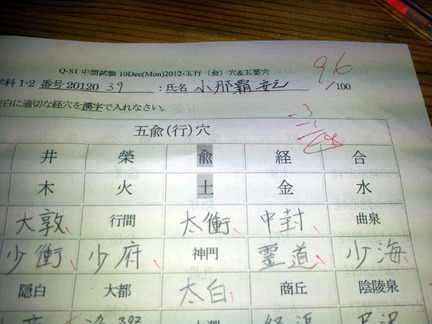 Q-S1 中間試験 10Dec(Mon)2012-五行（兪）穴&五要穴
学科1・2 番号 20120 39 :氏名 小那覇
96
/100
空白に適切な経穴を漢字で入れなさい。
-3
五兪(行)穴
井 榮 兪 経 合
木 火 土 金 水
大敦 行間 太衝 中封 曲泉
少衝 少府 神門 霊道 少海
隠白 大都 太白 商丘 陰陵泉